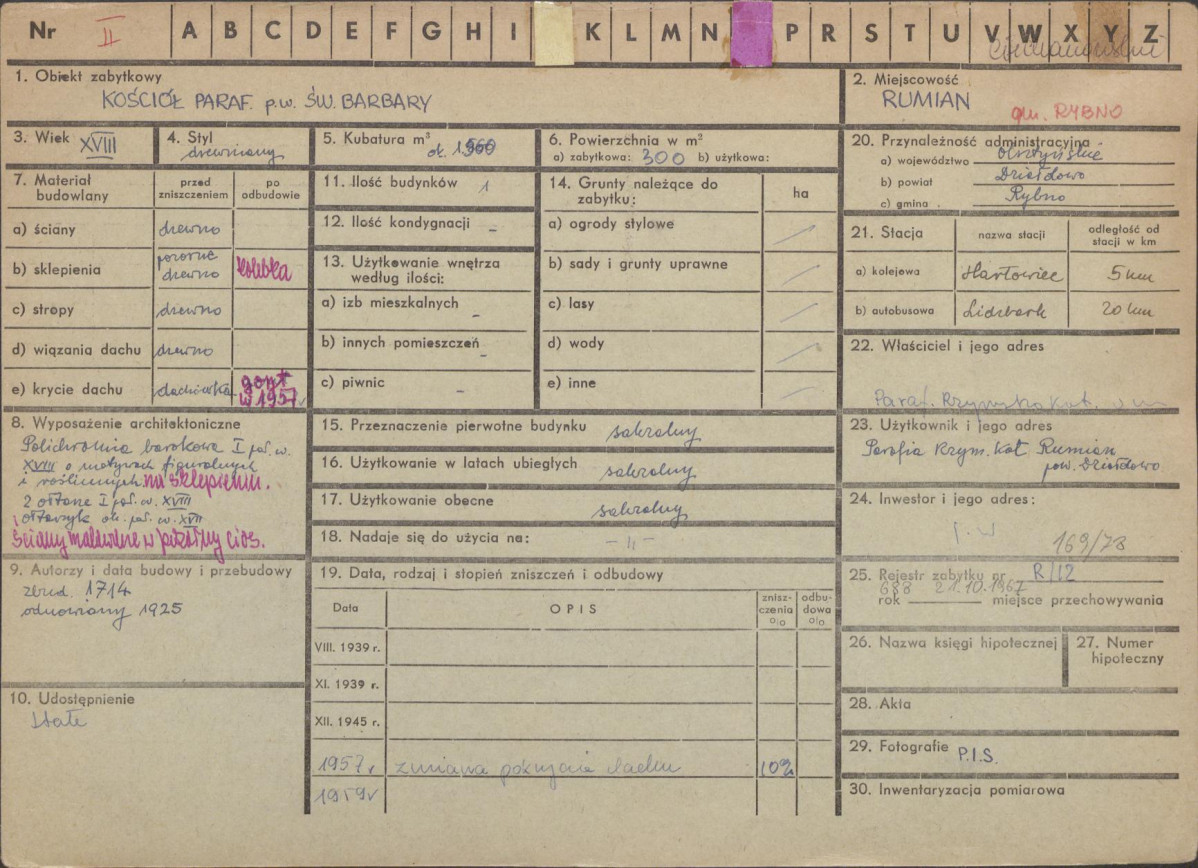 Nr II A B C D E F G H I K L M N P R S T U V W X Y Z
Ciechanowski
1. Obiekt zabytkowy
KOŚCIÓŁ PARAF. p.w. ŚW. BARBARY
2. Miejscowość
RUMIAN
gm. RYBNO
3. Wiek XVIII
4. Styl
drewniany
5. Kubatura m³
ok.
6. Powierzchnia w m²
a) zabytkowa: 300 b) użytkowa:
7. Materiał budowlany
przed zniszczeniem
po odbudowie
a) ściany drewno
b) sklepienia pozorne drewno kolebka
c) stropy drewno
d) wiązania dachu drewno
e) krycie dachu dachówka gont w 1957 r
8. Wyposażenie architektoniczne
Polichromia barokowa I poł. w.
XVIII o motywach figuralnych
i roślinnych na sklepieniu.
2 ołtarze I poł. w. XVIII
ołtarzyk ok. poł. w. XVII
ściany malowane w poziomy cios.
9. Autorzy i data budowy i przebudowy
zbud. 1714
odnowiony 1925
10. Udostępnienie
stałe
11. Ilość budynków 1
12. Ilość kondygnacji -
13. Użytkowanie wnętrza
według ilości:
a) izb mieszkalnych -
b) innych pomieszczeń -
c) piwnic -
14. Grunty należące do
zabytku:
ha
a) ogrody stylowe
b) sady i grunty uprawne
c) lasy
d) wody
e) inne
15. Przeznaczenie pierwotne budynku sakralny
16. Użytkowanie w latach ubiegłych sakralny
17. Użytkowanie obecne sakralny
18. Nadaje się do użycia na: - ıı -
19. Data, rodzaj i stopień zniszczeń i odbudowy
Data
OPIS
znisz-
czenia
o/o
odbu-
dowa
o/o
VIII. 1939 r.
XI. 1939 r.
XII. 1945 r.
1957 r zmiana pokrycia dachu 10%
1959 r
20. Przynależność administracyjna
a) województwo Olsztyńskie
b) powiat Działdowo
c) gmina . Rybno
21. Stacja
nazwa stacji
odległość od
stacji w km
a) kolejowa Hartowiec 5 km
b) autobusowa Lidzbark 20 km
22. Właściciel i jego adres
Paraf. Rzymskokat.
23. Użytkownik i jego adres
Parafia Rzym. Kat Rumian
pow. Działdowo
24. Inwestor i jego adres:
j. w
169/78
25. Rejestr zabytku nr R/12
688 21.10.1967
rok miejsce przechowywania
26. Nazwa księgi hipotecznej
27. Numer
hipoteczny
28. Akta
29. Fotografie P.I.S.
30. Inwentaryzacja pomiarowa